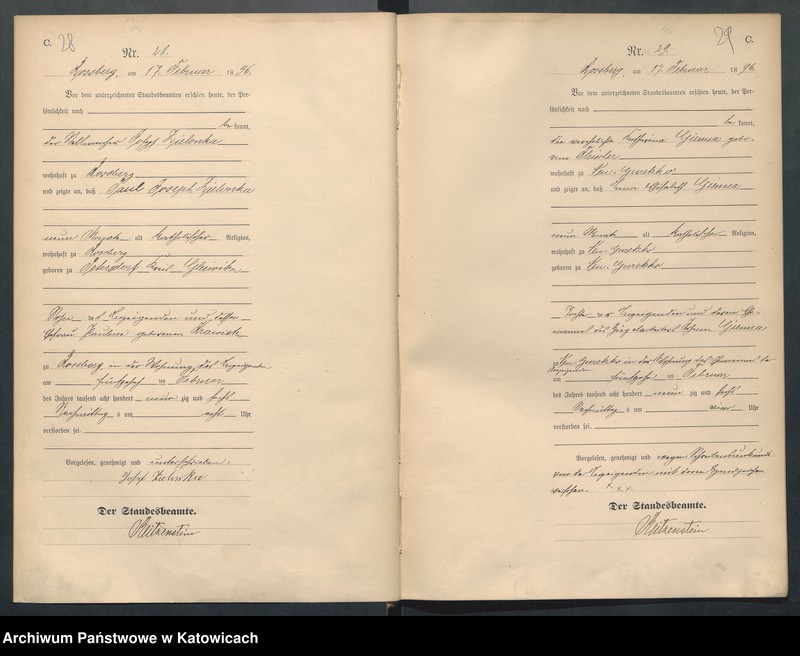 C. 28
Nr. 28.
Rossberg, am 17. Februar 1896.
Vor dem unterzeichneten Standesbeamten erschien heute, der Per-
sönlichkeit nach
be kannt,
der Stellmacher Josef Zielonka
wohnhaft zu Rossberg
und zeigte an, daß Paul Joseph Zielonka
neun Monate alt katholischer Religion,
wohnhaft zu Rossberg
geboren zu Petersdorf Kreis Gleiwitz
Sohn des Anzeigenden und dessen
Ehefrau Pauline geborenen
zu Rossberg, in der Wohnung des Anzeigenden
am fünfzehn ten Februar
des Jahres tausend acht hundert neun zig und sechs
Nachmittag s um acht Uhr
verstorben sei.
Vorgelesen, genehmigt und unterschrieben.
Josef Zielonka
Der Standesbeamte.
29 C.
Nr. 29.
Rossberg, am 17. Februar 1896.
Vor dem unterzeichneten Standesbeamten erschien heute, der Per-
sönlichkeit nach
be kannt,
die verehelichte Katharina Giemsa gebo-
rene
wohnhaft zu
und zeigte an, daß Elisabeth Giemsa
neun Monate alt katholischer Religion,
wohnhaft zu
geboren zu
Tochter der Anzeigenden und deren Ehe-
mannes des Johann Giemsa
zu in der Wohnung der
Anzeigenden
am fünfzehn ten Februar
des Jahres tausend acht hundert neun zig und sechs
Nachmittag s um vier Uhr
verstorben sei.
Vorgelesen, genehmigt und wegen Schreibensunkunde
von der Anzeigenden mit deren Handzeichen
versehen. + + +
Der Standesbeamte.
Archiwum Państwowe w Katowicach